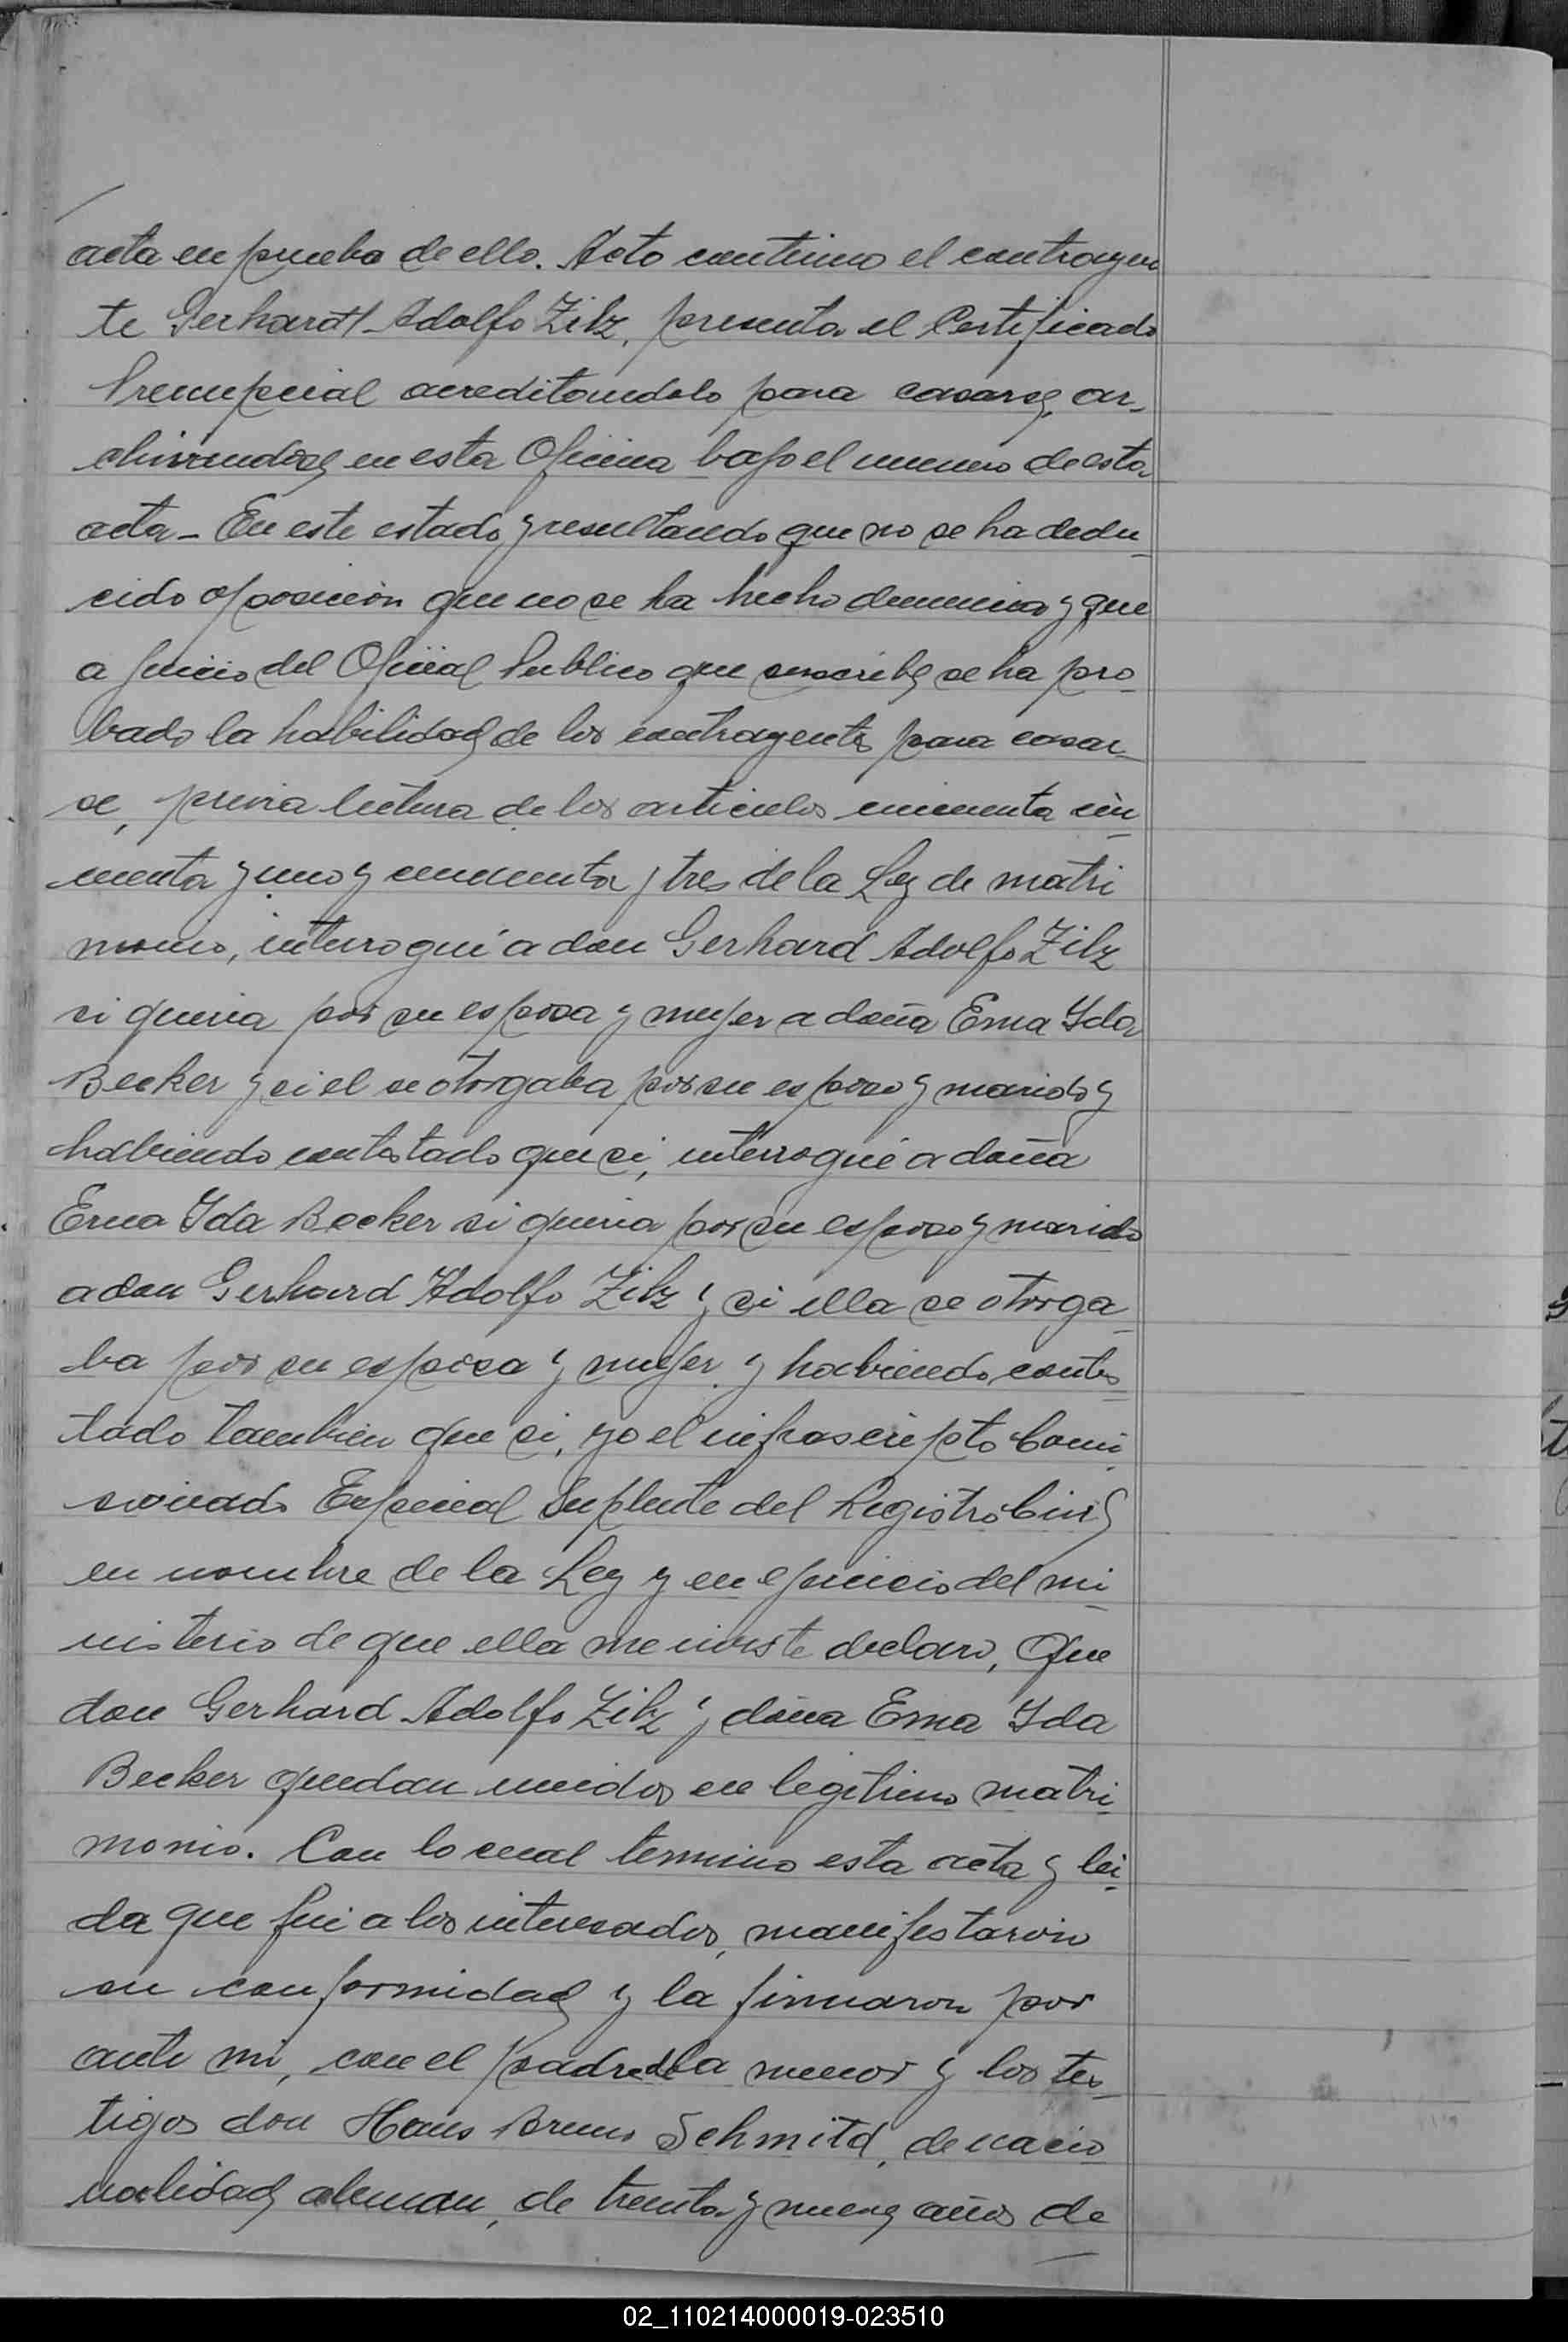 acta en prueba de ello. Acto continuo el contrayen
te Gerhardt Adolfo Zilz, presenta el Certificado
Prenupcial acreditandolo para casarse, ar-
chivandose en esta Oficina bajo el numero de esta
acta - En este estado y resultando que no se ha dedu-
cido oposición que no se ha hecho denuncia y que
a juicio del Oficial Publico que suscribe se ha pro-
bado la habilidad de los contrayentes para casar-
se, previa lectura de los articulos cincuenta cin-
cuenta y uno y cincuenta y tres de la Ley de matri
monio, interrogué a don Gerhard Adolfo Zilz
si queria por su esposa y mujer a doña Erna Ida
Becker y si el se otorgaba por su esposo y marido y
habiendo contestado que si, interrogué a doña
Erna Ida Becker si queria por su esposo y marido
a don Gerhard Adolfo Zilz y si ella se otorga-
ba por su esposa y mujer y habiendo contes-
tado tambien que si, yo el infrascripto Comi-
sionado Especial Suplente del Registro Civil
en nombre de la Ley y en ejercicio del mi-
nisterio de que ella me inviste declaro, Que
don Gerhard Adolfo Zilz y doña Erna Ida
Becker quedan unidos en legitimo matri-
monio. Con lo cual termino esta acta y lei-
da que fui a los interesados, manifestaron
su conformidad y la firmaron por
ante mi, con el padre de la menor y los tes-
tigos don Hans Bruno Schmitd, de nacio-
nalidad aleman, de treinta y nueve años de
02_110214000019-023510